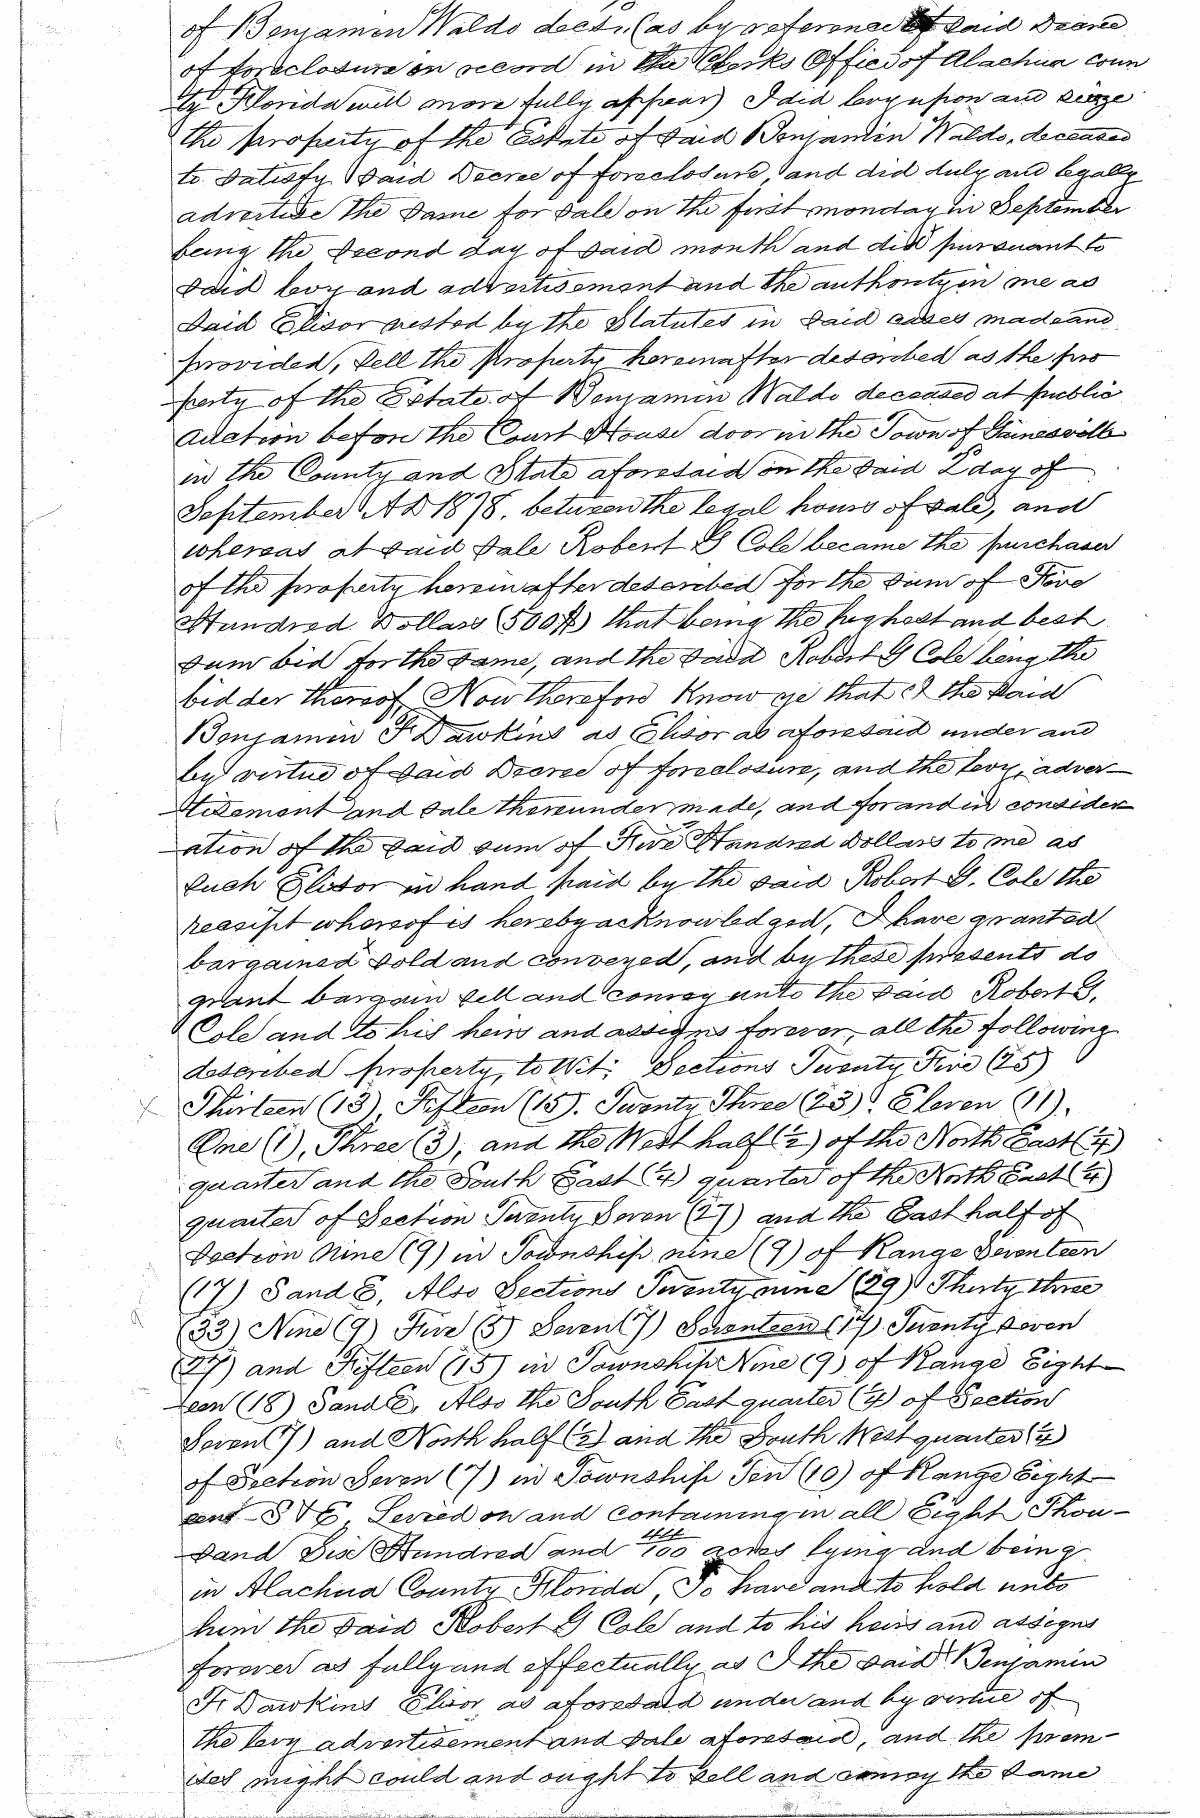 of Benjamin Waldo decd. (as by reference to said Decree
of foreclosure on record in the Clerks Office of Alachua coun
ty Florida will more fully appear) I did levy upon and sieze
the property of the Estate of said Benjamin Waldo, deceased
to satisfy said Decree of foreclosure, and did duly and legally
advertise the same for sale on the first monday in September
being the second day of said month and did pursuant to
said levy and advertisement and the authority in me as
said Elisor vested by the Statutes in said cases made and
provided, sell the property hereinafter described as the pro
perty of the Estate of Benjamin Waldo deceased at public
auction before the Court House door in the Town of Gainesville
in the County and State aforesaid on the said 2 day of
September AD 1878, between the legal hours of sale, and
whereas at said sale Robert G Cole became the purchaser
of the property hereinafter described for the sum of Five
Hundred Dollars (500$) that being the highest and best
sum bid for the same, and the said Robert G Cole being the
bidder thereof Now therefore Know ye that I the said
Benjamin F Dawkins as Elisor as aforesaid under and
by virtue of said Decree of foreclosure, and the levy, adver-
tisement and sale thereunder made, and for and in consider
ation of the said sum of Five Hundred Dollars to me as
such Elisor in hand paid by the said Robert G. Cole the
reasipt whereof is hereby acknowledged, I have granted
bargained sold and conveyed, and by these presents do
grant bargain sell and convey unto the said Robert G.
Cole and to his heirs and assigns forever, all the following
described property, to Wit: Sections Twenty Five (25)
Thirteen (13) Fifteen (15). Twenty Three (23). Eleven (11).
One (1), Three (3), and the West half (1/2) of the North East (1/4)
quarter and the South East (1/4) quarter of the North East (1/4)
quarter of Section Twenty Seven (27) and the East half of
Section Nine (9) in Township nine (9) of Range Seventeen
(17) S and E. Also Sections Twenty nine (29) Thirty three
(33) Nine (9) Five (5) Seven (7) Seventeen (17) Twenty seven
(27) and Fifteen (15) in Township Nine (9) of Range Eight-
een (18) S and E. Also the South East quarter (1/4) of Section
Seven (7) and North half (1/2) and the South West quarter (1/4)
of Section Seven (7) in Township Ten (10) of Range Eight-
eent S & E, Levied on and containing in all Eight Thou-
sand Six Hundred and 44/100 acres lying and being
in Alachua County Florida, To have and to hold unto
him the said Robert G Cole and to his heirs and assigns
forever as fully and effectually as I the said Benjamin
F. Dawkins Elisor, as aforesaid under and by virtue of
the levy advertisement and sale aforesaid, and the prem-
ises might could and ought to sell and convey the same